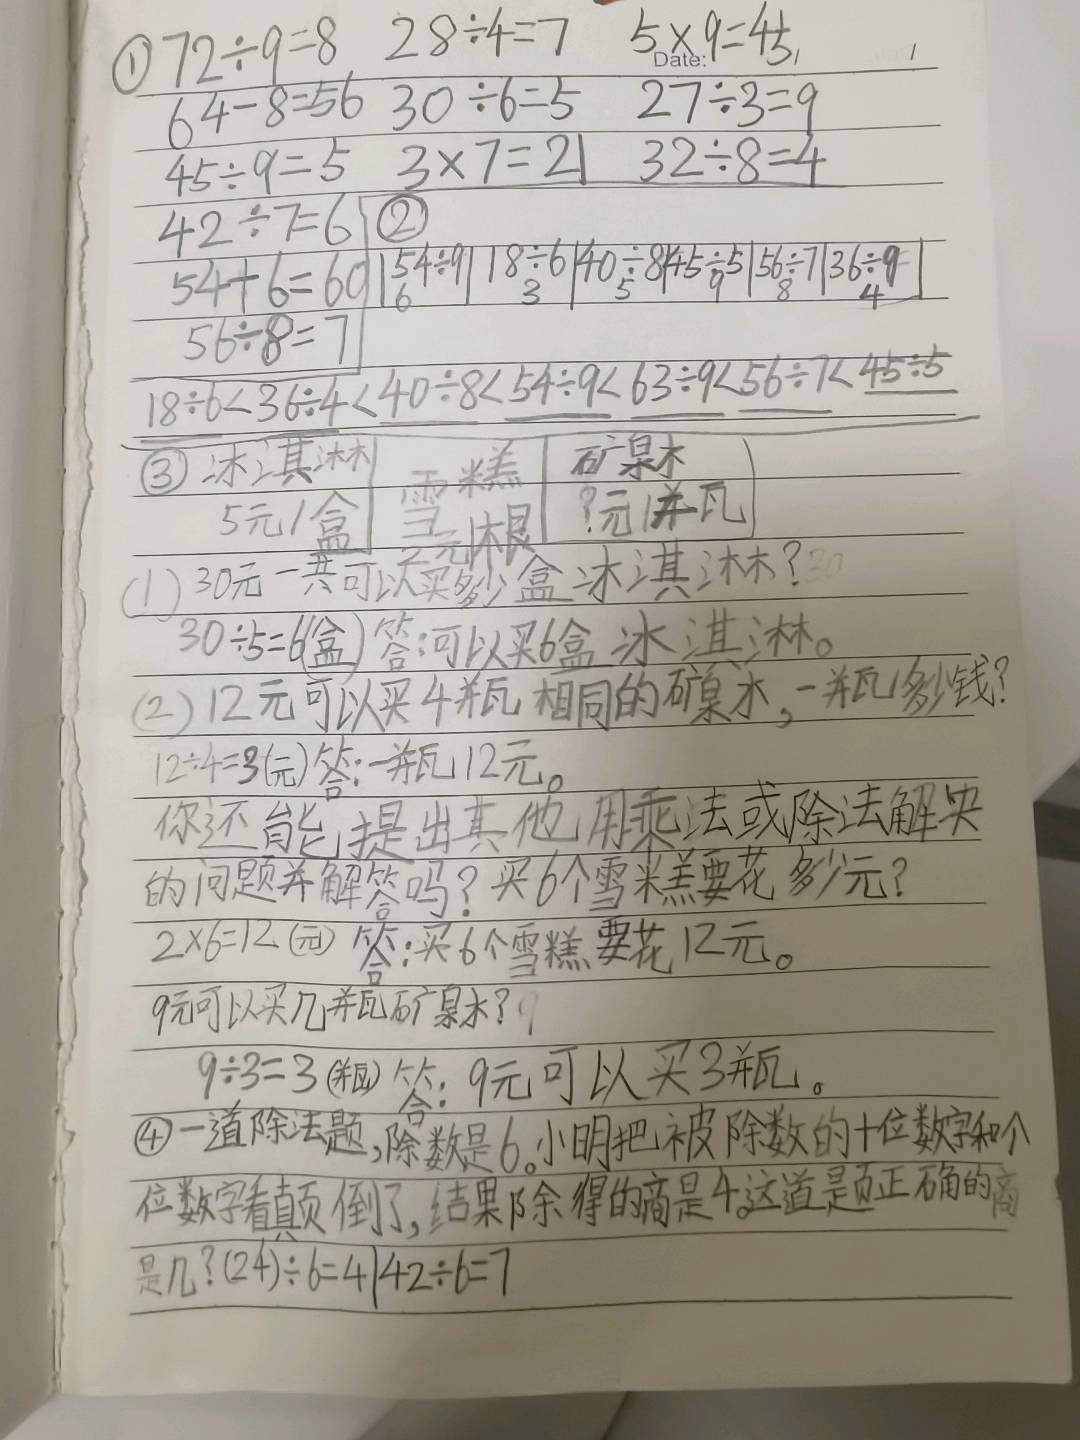 ①72÷9=8 28÷4=7 5×9=45
Date:
64-8=56 30÷6=5 27÷3=9
45÷9=5 3×7=21 32÷8=4
42÷7=6 ②
54+6=60 54÷9 18÷6 40÷8 45÷5 56÷7 36÷9
6 3 5 9 8 4
56÷8=7
18÷6<36÷4<40÷8<54÷9<63÷9<56÷7<45÷5
③冰淇淋 雪糕 矿泉水
5元/盒 2元/根 ?元/瓶
(1)30元一共可以买多少盒冰淇淋?
30÷5=6(盒)答:可以买6盒冰淇淋。
(2)12元可以买4瓶相同的矿泉水,一瓶多少钱?
12÷4=3(元)答:一瓶12元。
你还能提出其他用乘法或除法解决
的问题并解答吗?买6个雪糕要花多少元?
2×6=12(元) 答:买6个雪糕要花12元。
9元可以买几瓶矿泉水?
9÷3=3(瓶)答:9元可以买3瓶。
④一道除法题,除数是6。小明把被除数的十位数字和个
位数字看颠倒了,结果除得的商是4。这道是页正确的商
是几?(24)÷6=4|42÷6=7